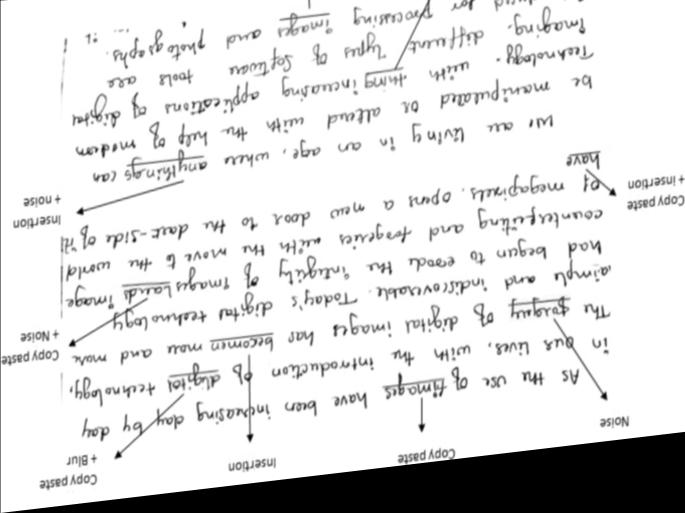 Noise
Copy paste
Insertion
Copy paste
+ Blur
As the use of images have been increasing day by day
in our lives, with the introduction of digital technology,
The forgery of digital images has becomen more and more
simple and indiscoverable. Today's digital technology
Copy paste
+ Noise
had begun to erode the integrity of images image
counterfeiting and forgeries with the move to the world
of megapixels. opens a new door to the dark-side of it
Copy paste
+ insertion
have
Insertion
+ noise
we are living in an age, where anythings can
be manipulated or altered with the help of modern
Technology. with thing increasing applications of digital
Imaging. different Types of Software tools are
for processing images and photographs.